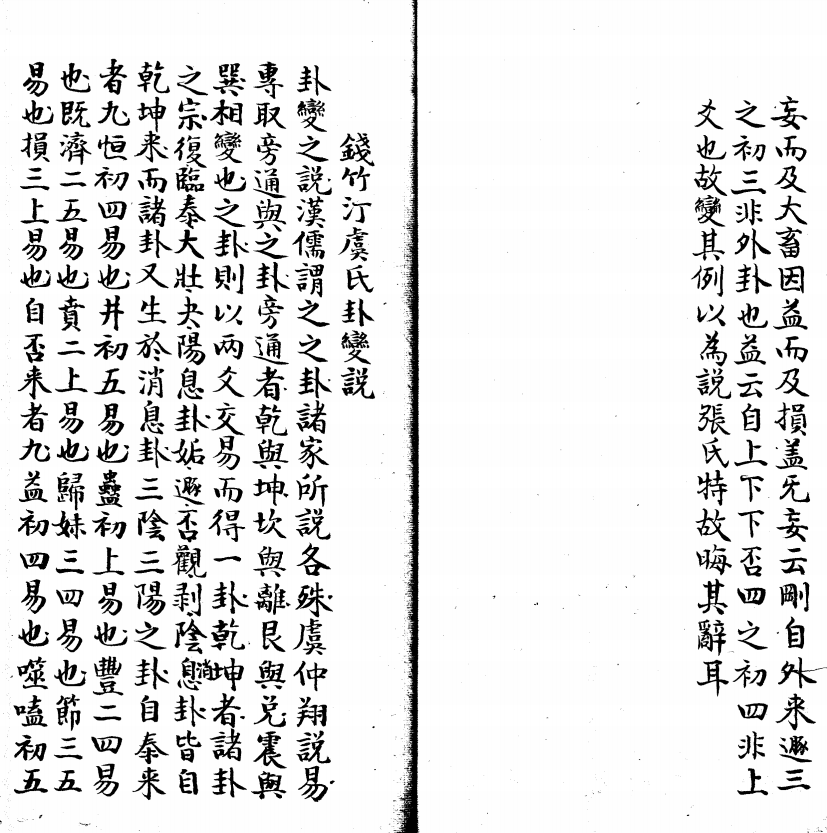 妄而及大畜因益而及損盖旡妄云剛自外来遯三
之初三非外卦也益云自上下下否四之初四非上
爻也故變其例以為說張氏特故晦其辭耳
錢竹汀虞氏卦變説
卦變之說漢儒謂之之卦諸家所說各殊虞仲翔說易
專取旁通與之卦旁通者乾與坤坎與離艮與兑震與
巽相變也之卦則以兩爻交易而得一卦乾坤者諸卦
之宗復臨泰大壯夬陽息卦姤遯否觀剥陰息消卦皆自
乾坤来而諸卦又生於消息卦三陰三陽之卦自泰来
者九恒初四易也井初五易也蠱初上易也豐二四易
也既濟二五易也賁二上易也歸妹三四易也節三五
易也損三上易也自否来者九益初四易也噬嗑初五